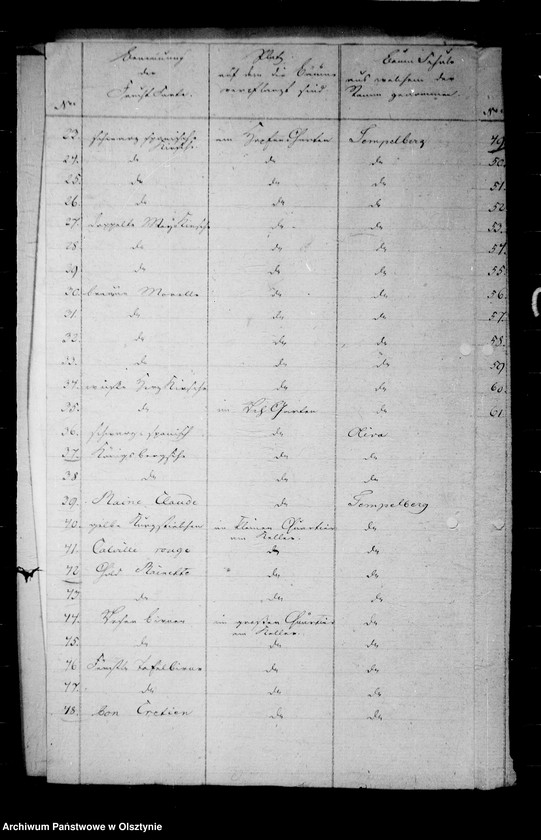 Benennung der Frucht Sorte. | Platz auf dem die Bäume verpflanzt sind. | Baum Schule aus welcher der Stamm genommen
No.
23. schwarz spanische Kirsche | am Hopfen Garten | Tempelberg | 49
24. do | do | do | 50.
25. do | do | do | 51.
26. do | do | do | 52
27. Doppelte May Kirsche | do | do | 53.
28 do | do | do | 54.
29 do | do | do | 55.
30 braune Morelle | do | do | 56.
31. do | do | do | 57.
32. do | do | do | 58.
33. do | do | do | 59
34. Kirsche | do | do | 60.
35. do | im Garten | do | 61
36. schwarze spanisch | do | Oliva
37. Königsbergsche | do | do
38 do | do | do
39. Raine Claude | do | Tempelberg
40. gelbe | im kleinen Quartier am Keller. | do
41. Calville rouge | do | do
42 Gold Rainette | " do | do
43 do | do | do
44. birnen | im großen Quartier am Keller. | do
45. do | do | do
46 tafelbirne | do | do
47. do | do | do
48. bon Cretien | do | do
Archiwum Państwowe w Olsztynie